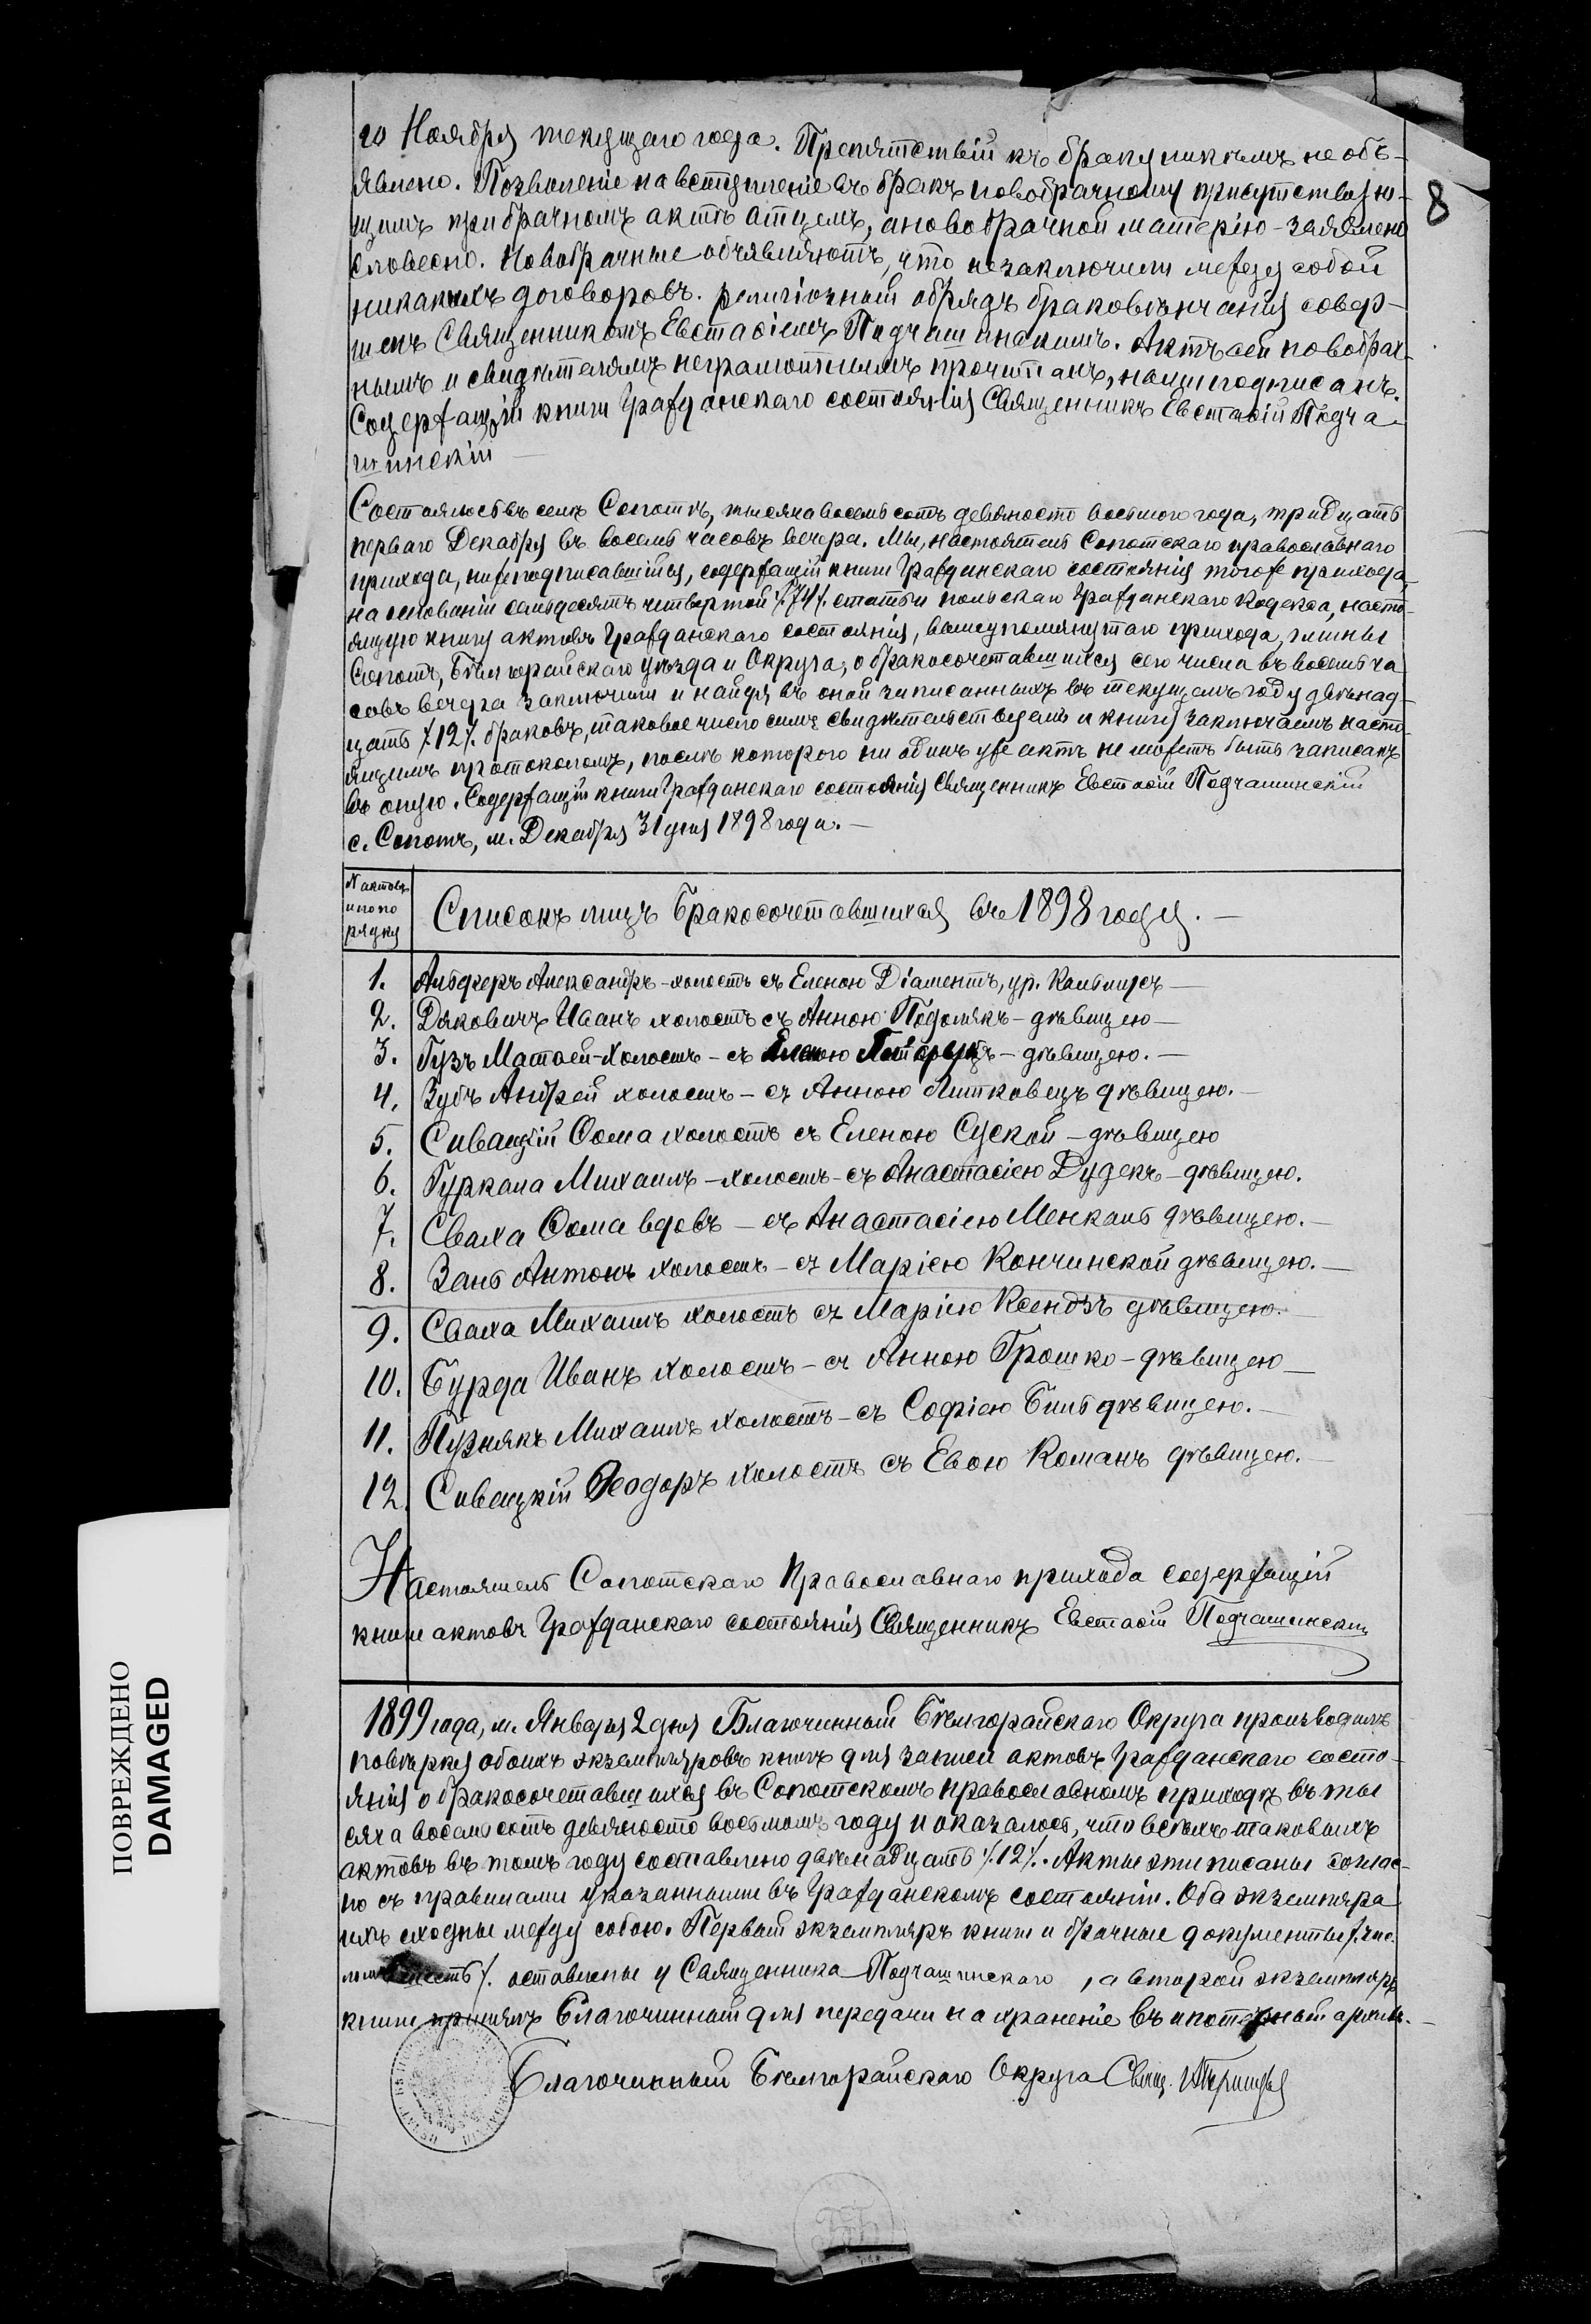 го Ноября текущаго года. Препятствій къ браку никѣмъ не объ-
явлено. Позволеніе на вступленіе въ бракъ новобрачному присутствую-
щимъ при брачномъ актѣ отцемъ, а новобрачной матерію - заявлено
словесно. Новобрачные объявляютъ, что незаключили между собой
никакихъ договоровъ. Религіозный обрядъ браковѣнчанія совер-
шенъ Священникомъ Евстаѳіемъ Подчашинскимъ. Актъ сей новобрач-
нымъ и свидѣтелямъ неграмотнымъ прочитанъ, нами подписанъ.
Содержащій книги Гражданскаго состоянія Священникъ Евстаѳій Подча-
шинскій
Состоялось въ селѣ Сопотѣ, тысяча восемь сотъ девяносто восьмого года, тридцать
перваго Декабря въ восемь часовъ вечера. Мы, настоятель Сопотскаго православнаго
прихода, нижеподписавшійся, содержащій книги Гражданскаго состоянія тогоже прихода,
на основаніи семьдесятъ четвертой /:74/: статьи польскаго Гражданскаго Кодекса, насто-
ящую книгу актовъ Гражданскаго состоянія, вышеупомянутаго прихода, гмины
Сопотъ, Бѣлгорайскаго уѣзда и Округа, о бракосочетавшихся сего числа въ восемь ча
совъ вечера заключили и найдя въ оной записанныхъ въ текущемъ году двѣнад-
цать /:12/: браковъ, таковое число симъ свидѣтельствуемъ и книгу заключаемъ насто-
ящимъ протоколомъ, послѣ котораго ни одинъ уже актъ не можетъ быть записанъ
въ оную. Содержащій книги Гражданскаго состоянія Священникъ Евстаѳій Подчашинскій
с. Сопотъ, м. Декабря 31 дня 1898 года. —
N актовъ
и по по
рядку
Списокъ лицъ Бракосочетавшихся въ 1898 году. —
1. Александръ - холостъ съ Еленою Діаментъ, ур.
2. Дяковичъ Иванъ холостъ съ Анною Подолякъ - дѣвицею —
3. Гузъ Матѳей - холостъ - съ Еленою - дѣвицею. —
4. Зубъ Андрей холостъ - съ Анною Литковецъ дѣвицею. —
5. Сивацкій Ѳома холостъ съ Еленою Суской - дѣвицею
6. Гуркала Михаилъ - холостъ - съ Анастасіею Дудекъ - дѣвицею.
7. Сваха Ѳома вдовъ - съ Анастасіею Менкаль дѣвицею. —
8. Зань Антонъ холостъ - съ Маріею Кончинской дѣвицею. —
9. Сваха Михаилъ холостъ съ Маріею Ксендзъ дѣвицею.
10. Бурда Иванъ холостъ - съ Анною Грошко - дѣвицею —
11. Пузнякъ Михаилъ холостъ - съ Софіею Биль дѣвицею. —
12. Сивецкій Ѳеодоръ холостъ съ Евою Команъ дѣвицею. —
Настоятель Сопотскаго Православнаго прихода содержащій
книги актовъ Гражданскаго состоянія Священникъ Евстаѳій Подчашинскій
1899 года, м. Января 2 дня Благочинный Бѣлгорайскаго Округа производилъ
повѣрку обоихъ экземпляровъ книгъ для записи актовъ Гражданскаго состо-
янія о бракосочетавшихся въ Сопотскомъ православномъ приходѣ въ ты
сяча восемьсотъ девяносто восьмомъ году и оказалось, что всѣхъ таковыхъ
актовъ въ томъ году составлено двѣнадцать /:12/:. Акты эти писаны соглас-
но съ правилами указанными въ Гражданскомъ состояніи. Оба экземпляра
ихъ сходны между собою. Первый экземпляръ книги и брачные документы /:чис-
ломъ /: оставлены у Священника Подчашинскаго, а второй экземпляръ
книги принялъ Благочинный для передачи на храненіе въ ипотечный архивъ. —
Благочинный Бѣлгорайскаго Округа Свящ.
8
ПОВРЕЖДЕНО
DAMAGED